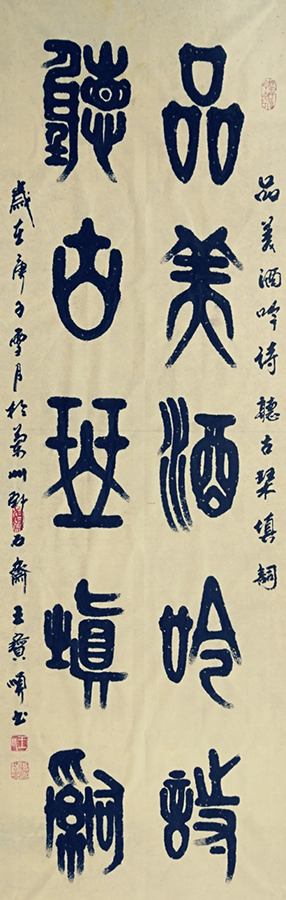 品美酒吟诗聽古琴填詞
品美酒吟詩
聽古琴填詞
歲在庚子雪月於蘭州石齋王寶书